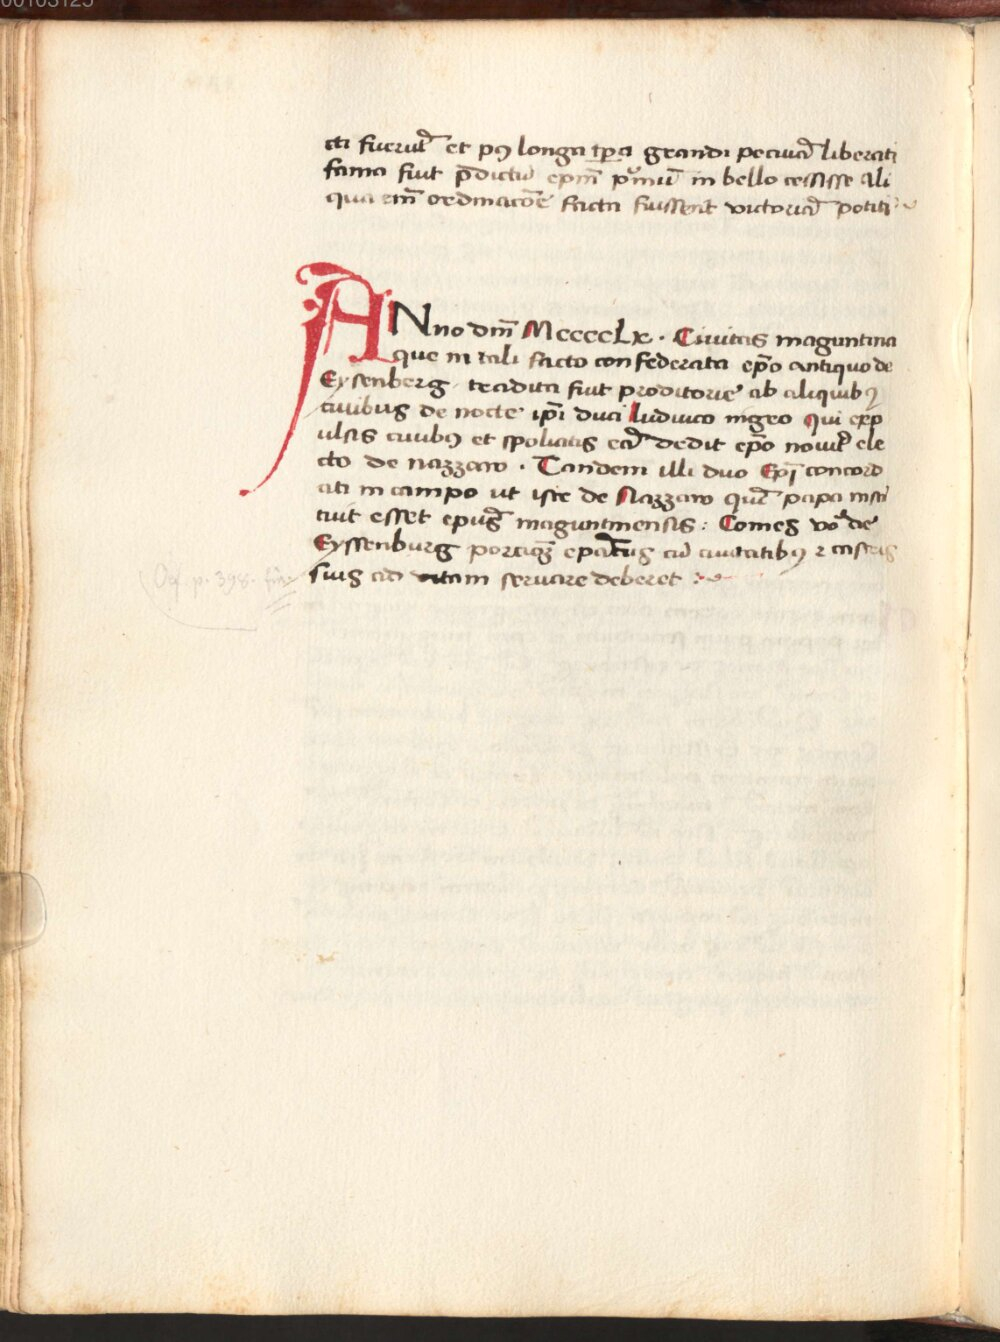 00103125
cti fuerūt et pꝯ longa tp̄a grandi pecuīa liberati
fama fuit p̄dictū ep̄m pͥmū in bello cessisse Ali
qua em̄ ordinacōe facta fuissent victoriā potiti
ANno dnī MccccLx . Ciuitas maguntina
que in tali facto confederata ep̄o antiquo de
Eysenberg tradita fuit proditorie ab aliquibꝯ
ciuibus de nocte ip̄i duci Ludwico nigro Qui exp
ulsis ciuibꝯ et spoliatis eā dedit ep̄o nouit͛ ele
cto de nazzaw . Tandem illi duo Ep̄i concord
ati in campo ut iste de Nazzaw quē papa insti
tuit esset epūs maguntinensis : Comes vͦo de
Eyssenburg porcioꝫ ep̄atus cū ciuitatibꝯ ⁊ castris
suis ad vitam seruare deberet :
Oef. p. 398.